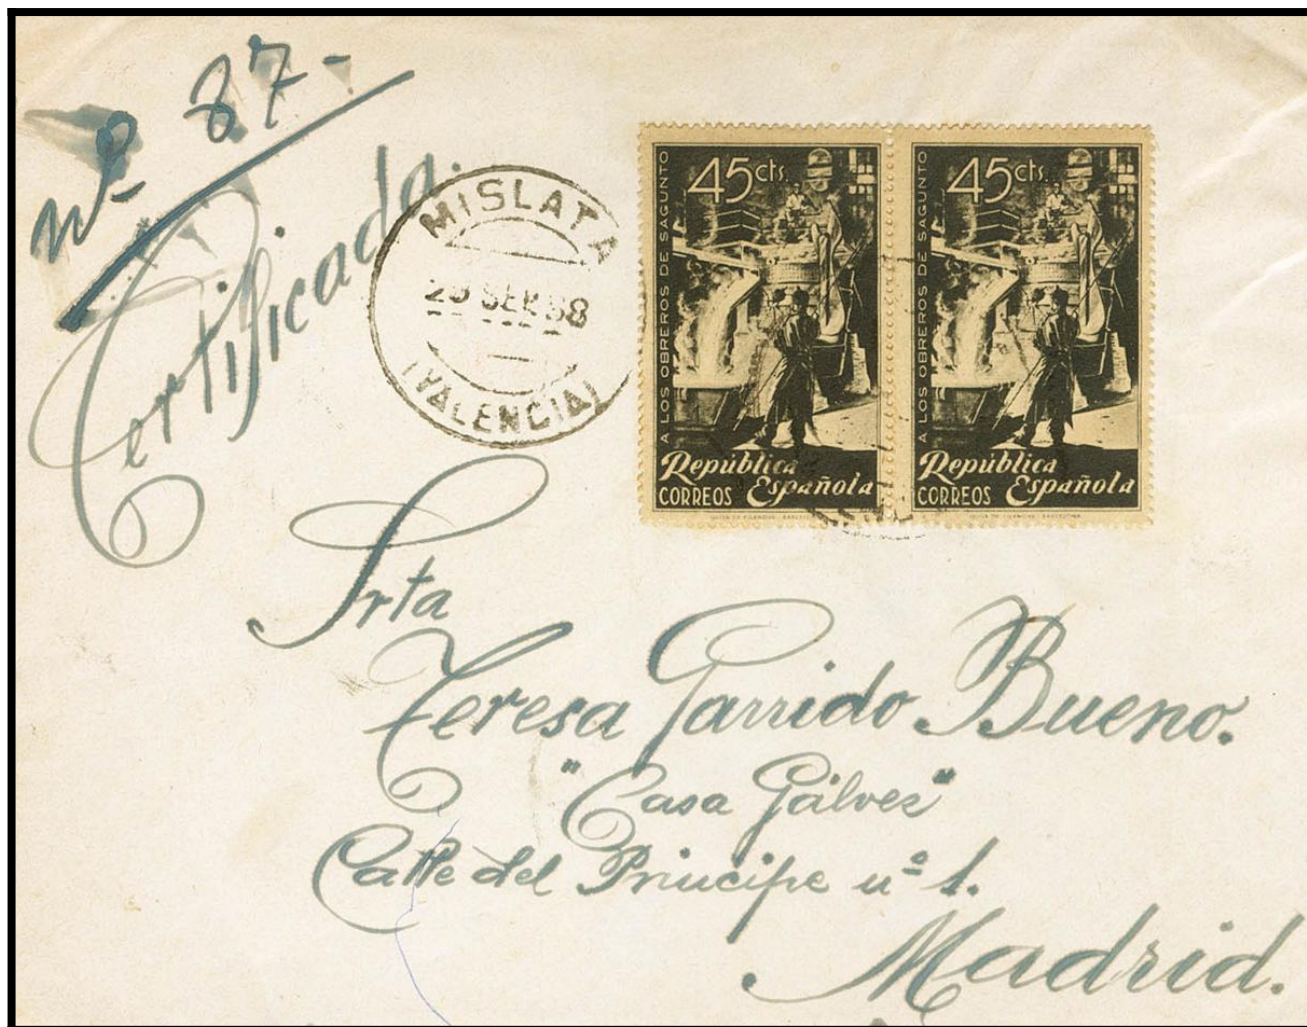 nº 87-
Certificada.
MISLATA
SEP. 38
(VALENCIA)
45cts.
A LOS OBREROS DE SAGUNTO
República
CORREOS Española
45cts.
A LOS OBREROS DE SAGUNTO
República
CORREOS Española
Srta
Teresa Garrido Bueno.
"Casa Gálvez"
Calle del Principe nº 1.
Madrid.